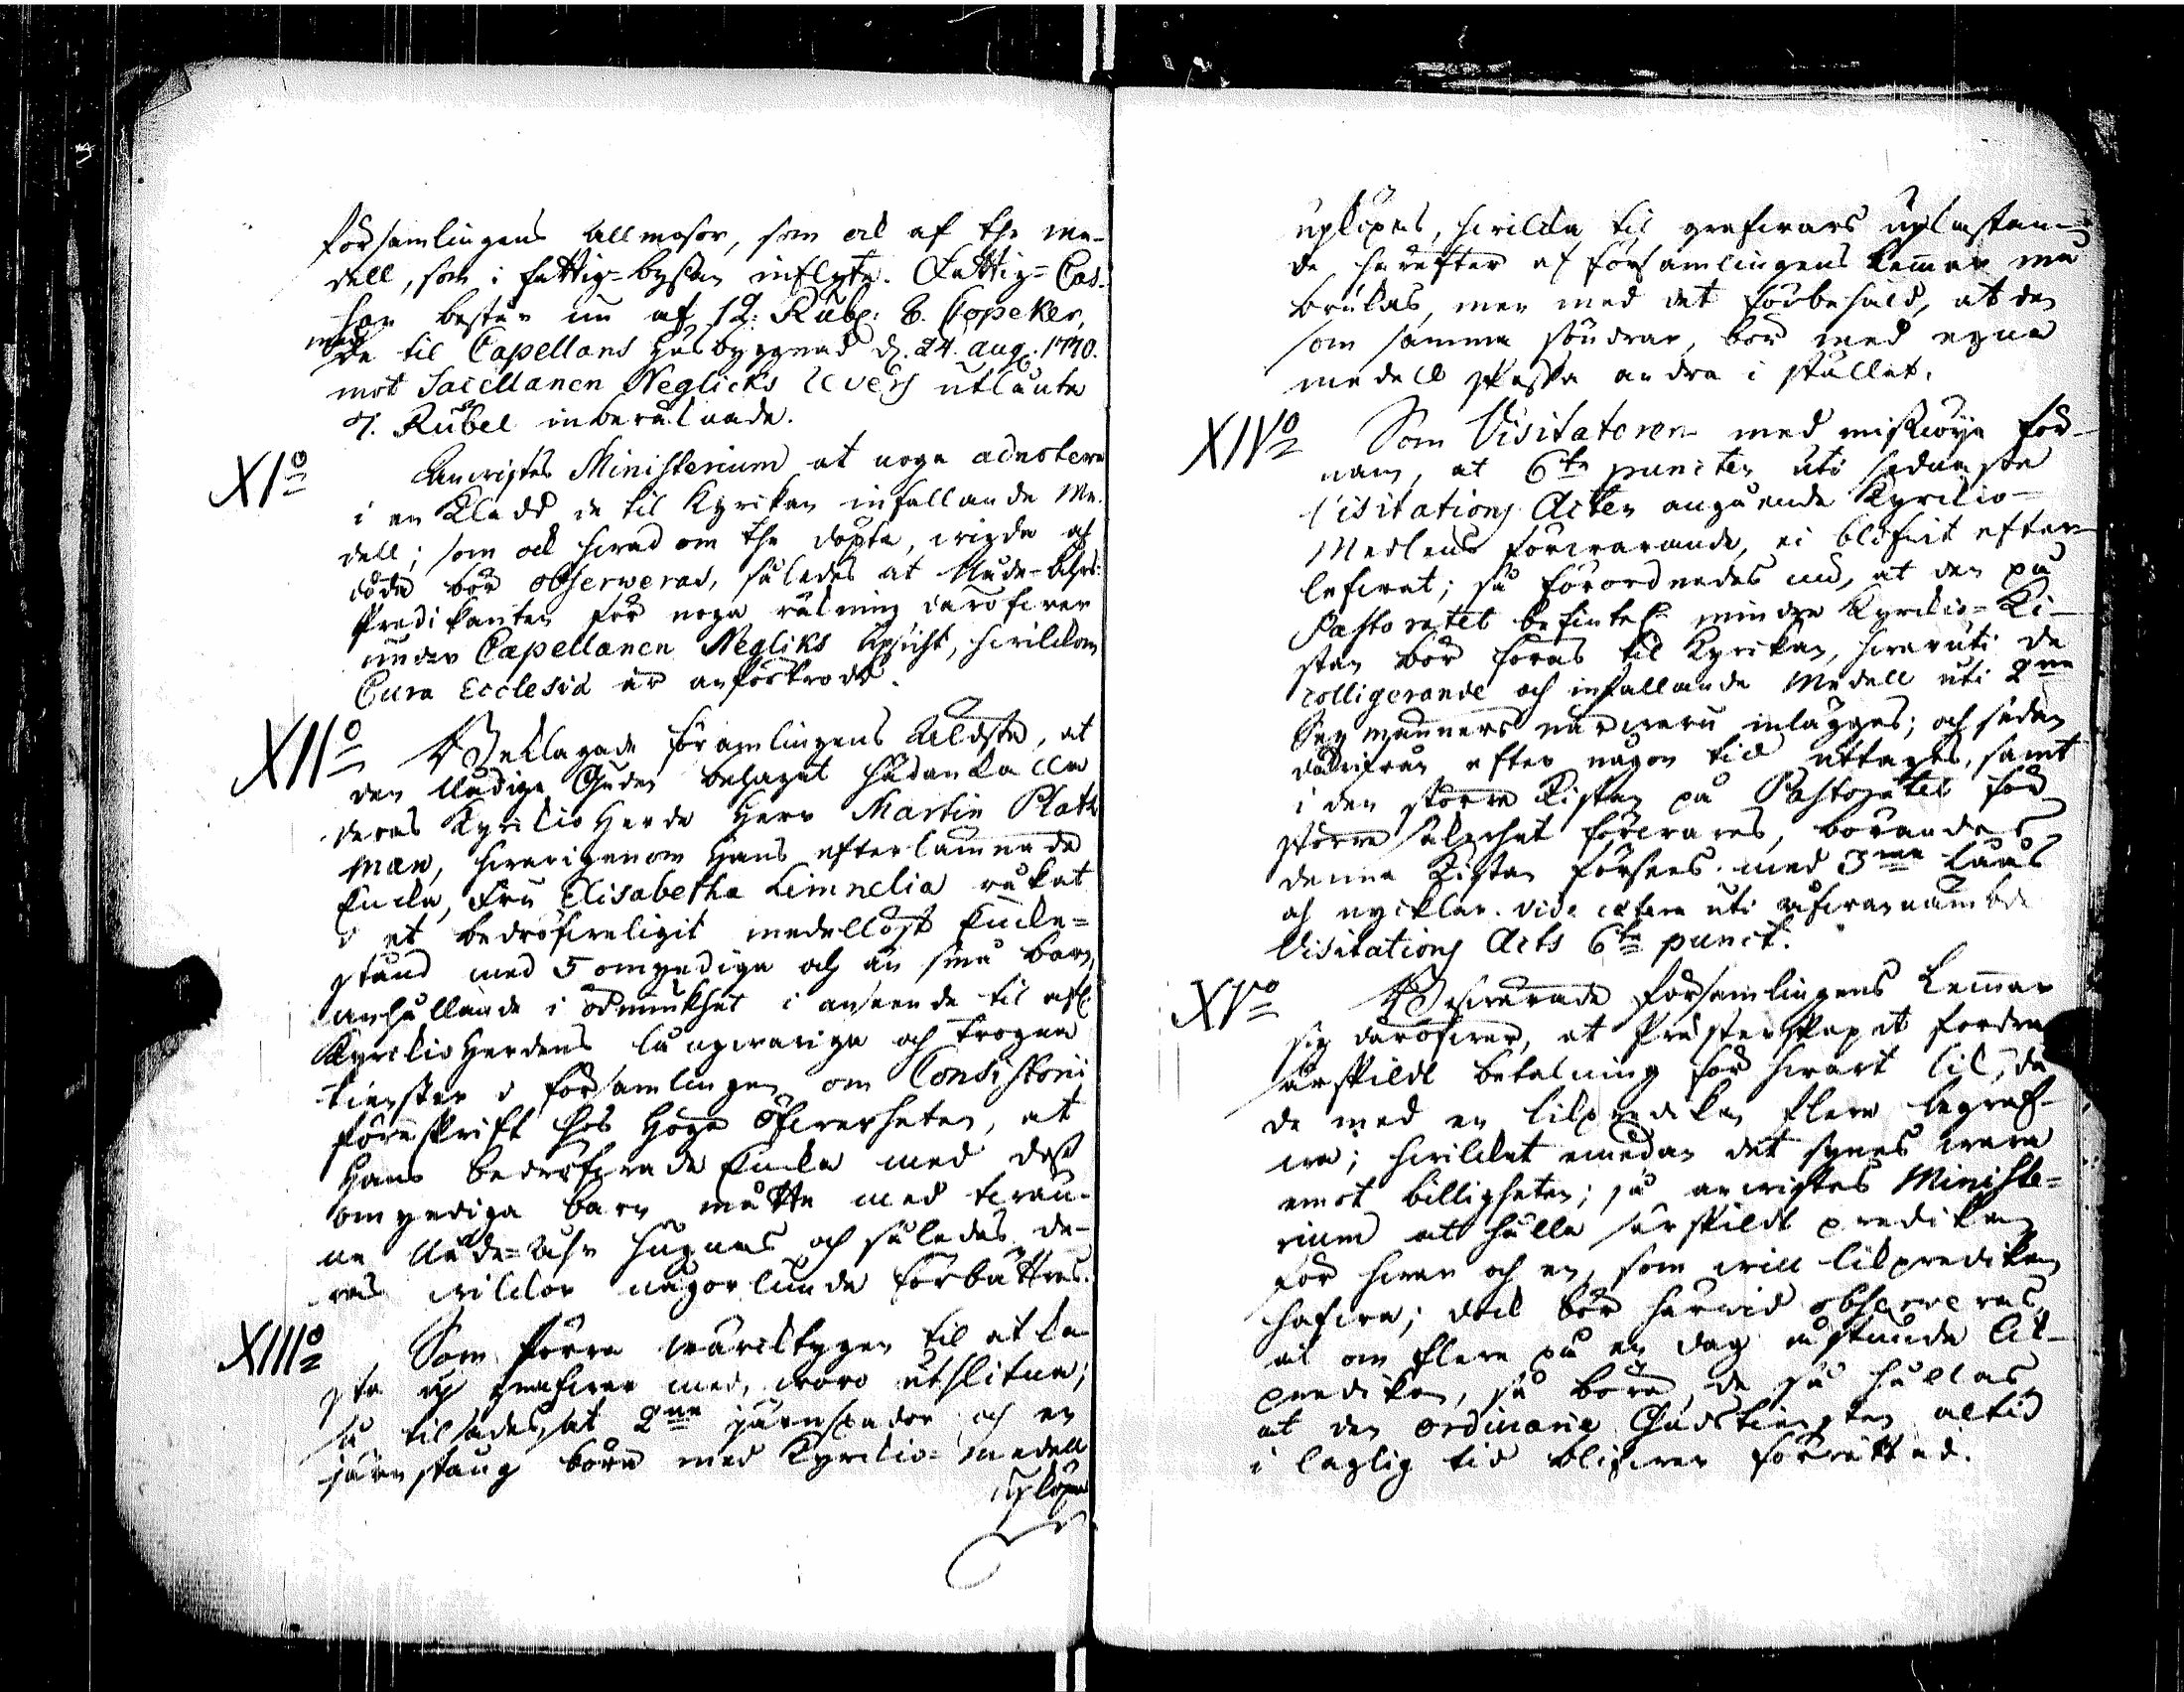 församlingens allmosor, som ock af the me-
dell, som i fattig-byssan inflyta. Fattig-Cas-
san består nu af 12. Rubl: 8. Copeker,
med de til Capellans Husbyggnad d. 24. aug. 1770.
mot Sacellanen Neglicks revers utlånte
7. Rubel inberäknade.
XI:o Anwistes Ministerium at noga adnotera
i en Kladd de til Kyrkan infallande Me-
dell; som ock hwad om the döpta, wigda och
döda bör observeras, således at Nåde-åhrs
Predikanten för noga räkning däröfwer
under Capellanen Negliks upsicht, hwilkom
Cura Ecclesiæ är anförtrodd.
XII:o Beklagade församlingens Äldste, at
den Nådige Guden behagat hädankalla
deras Kyrkio Herde Herr Martin Plath
man, hwarigenom Hans efterlämnade
Enka, Fru Elisabetha Limnelia råkat
i et bedröfweligit medellöst Enke-
stånd med 5 omyndiga och än små barn,
anhållande i ödmiukhet i anseende til afl.
KyrkioHerdens långwariga och trogna
tienster i församlingen om Consistorii
förskrift hos Höga Öfwerheten, at
Hans bedröfwade Enka med dess
omyndiga barn måtte med twän-
ne Nåde-Åhr hugnas och således de-
ras wilckor någorlunda förbättras.
XIII:o Som förra wärcktygen til at ka-
sta up grafwar med, woro utslitne;
så tilsades, at 2:ne järnspador och en
järnstång böra med Kyrkio-medell
upköpas
upköpas, hwilka til grafwars upkastan-
de härefter af församlingens Lemmar må
brukas, men med det förbehåld, at den
som samma söndrar, bör med egna
medell skaffa andra i stället.
XIV:o Som Visitatoren med misnöije för-
nam, at 6:te puncten uti sednaste
Visitations Acten angående Kyrkio-
Medlens förwarande, ei blifwit efter-
lefwat; så förordnades nu, at den på
Pastoratet befintel. mindre Kyrkio-Ki-
stan bör föras til Kyrkan, hwaruti de
colligerande och infallande Medell uti 2:ne
Sexmanners närwaru inlägges; och sedan
därifrån efter någon tid uttages, samt
i den större Kistan på Pastoratet för
större säkerhet förwaras, börandes
denna Kistan förses med 3:ne Låås
och nycklar. vide cætera uti ofwannämde
Visitations Acts 6:te punct.
XV:o Beswärade församlingens Lemmar
sig däröfwer, at Prästerskapet fordra
särskildt betalning för hwart lik, då
de med en likpredikan flera begraf-
wa; hwilcket emedan det synes wara
emot billigheten; så anwistes Ministe-
rium at hålla särskildt predikan
för hwar och en, som will likpredikan
hafwa; dock bör härwid observeras,
at om flera på en dag åstunda lik-
predikan, så böra de så hållas,
at den ordinarie Gudstiensten altid
i laglig tid blifwer förrättad.